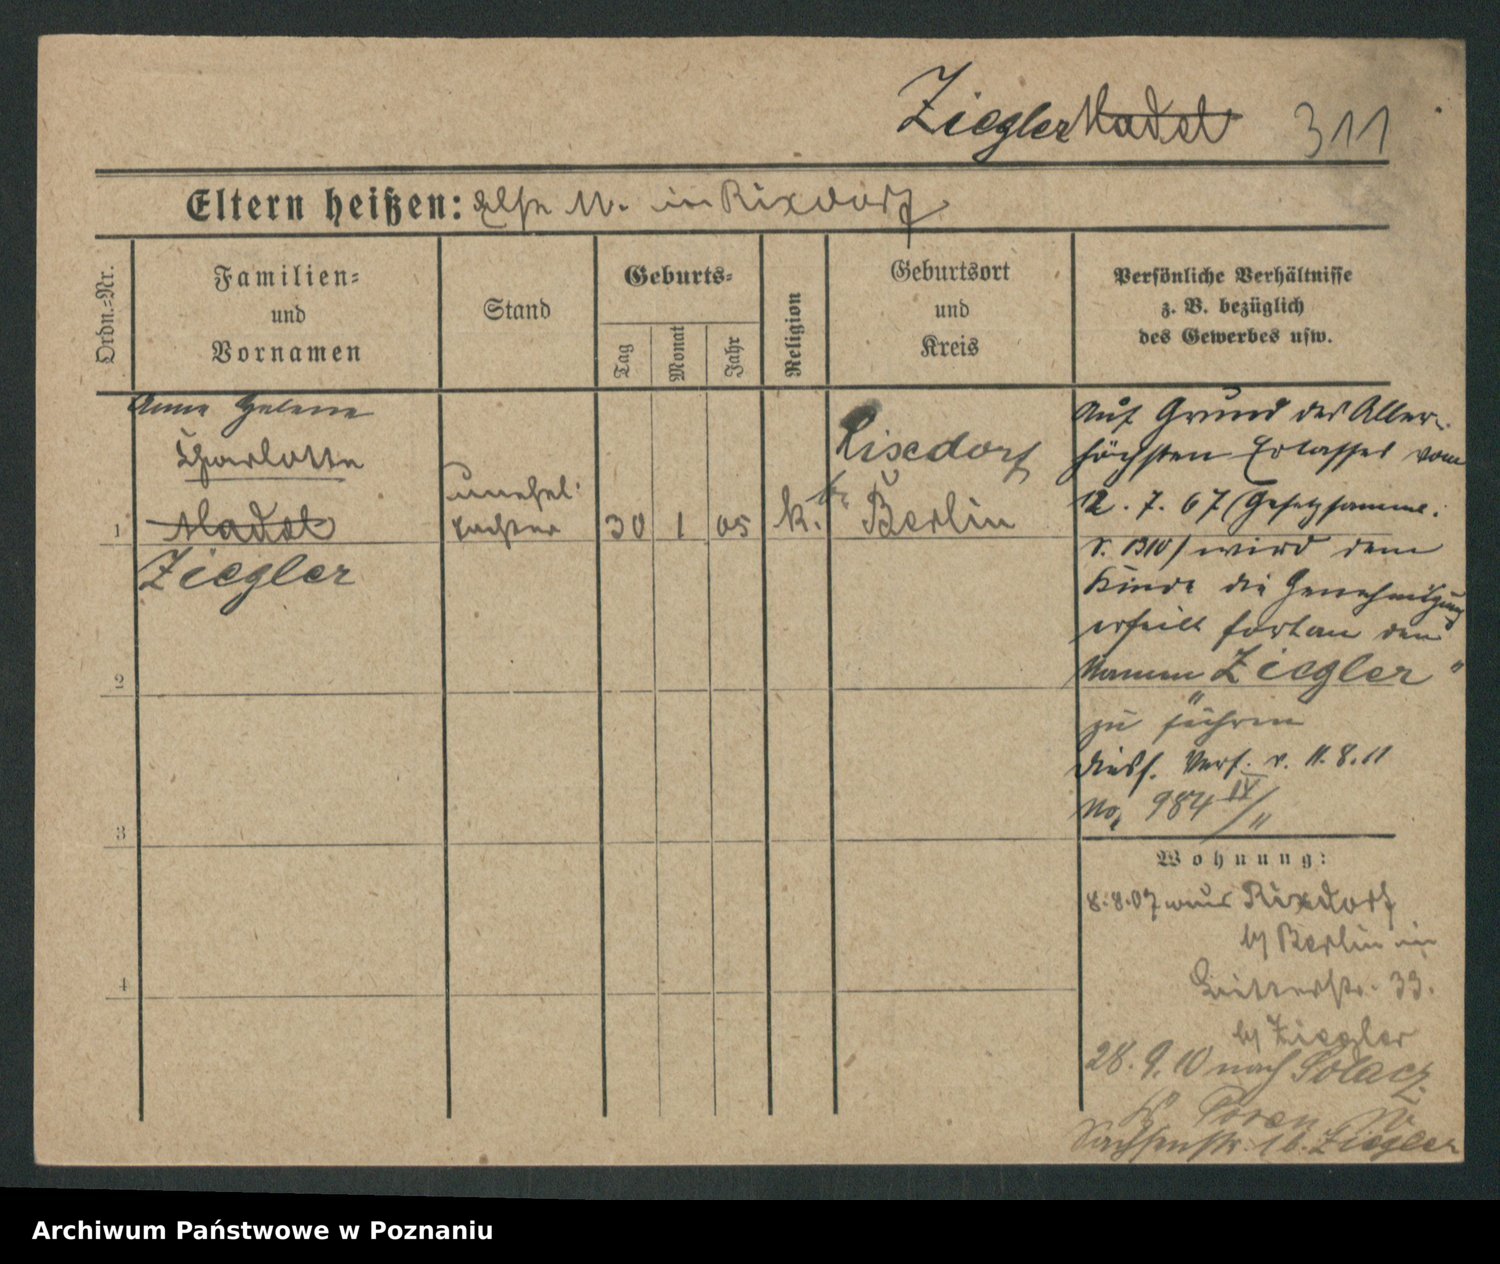 Ziegler Madel 311
Eltern heißen: Else M. in Rixdorf
Ordn.=Nr.
Familien=
und
Vornamen
Stand
Geburts=
Tag
Monat
Jahr
Religion
Geburtsort
und
Kreis
Persönliche Verhältnisse
z. B. bezüglich
des Gewerbes usw.
Anna Helene
Charlotte
1 Madel
Ziegler
unehel.
Tochter
30 1 05
k.
Rixdorf
b. Berlin
Auf Grund des Aller-
höchsten Erlasses vom
12. 7. 67 (Gesetzsamml.
S. 1310) wird dem
Kinde die Genehmigung
erteilt fortan den
Namen „Ziegler"
zu führen
Diess. Verf. v. 11.8.11
No. 984 IV/11
2
3
4
Wohnung:
8.8.07 aus Rixdorf
b/ Berlin in
33.
b/ Ziegler
28. 9. 10 nach Solacz
Kr. Posen W
Sachsenstr. 16. Ziegler
Archiwum Państwowe w Poznaniu